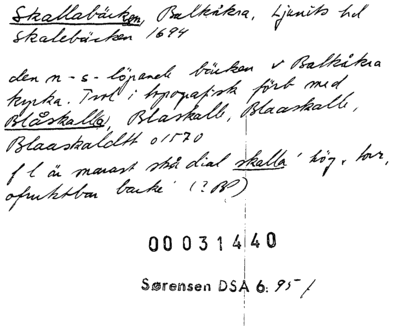 Skallabäcken, Balkåkra, Ljunits hd
Skalebäcken 1694
den n-s-löpande bäcken v Balkåkra
kyrka. Trol i topografisk förb med
Blåskalla, Blaskalle, Blaaskalle,
Blaaskaldtt o1570
f l är snarast skå dial skalla 'hög, torr,
ofruktbar backe' (?BP)
00 031440
Sørensen DSA 6: 95 f